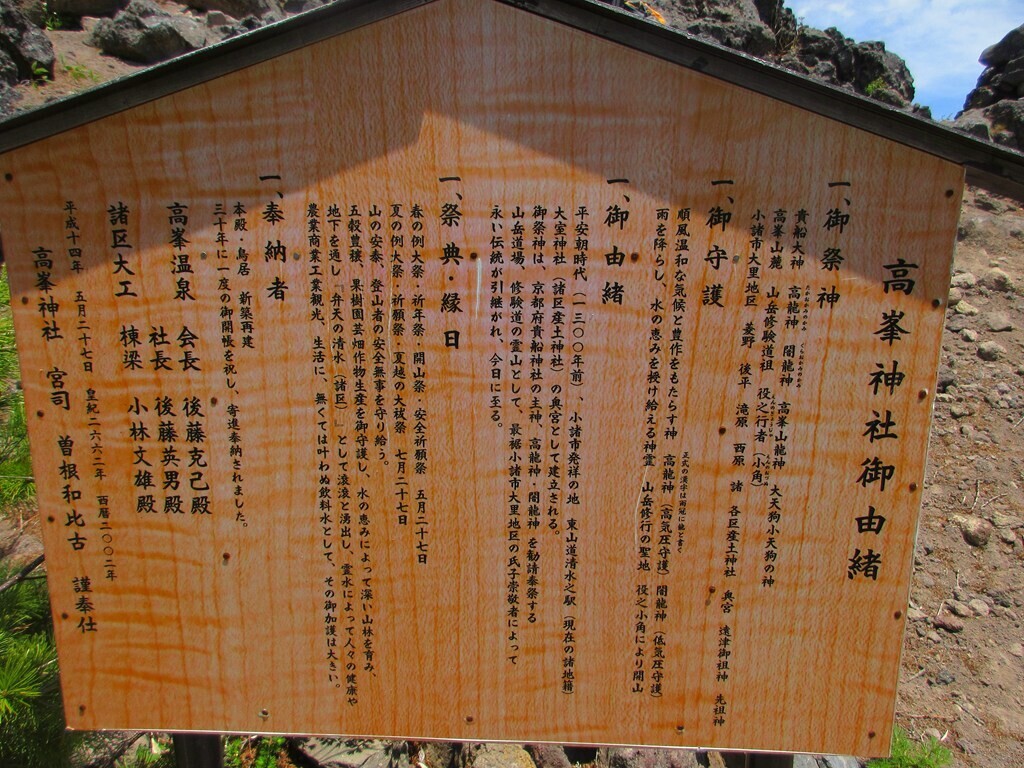 高峯神社御由緒
一、御祭神
貴船大神 高龍神 闇龍神 高峯山龍神 大天狗小天狗の神
高峯山麓 山岳修験道祖 役之行者(小角)
小諸市大里地区 菱野 後平 滝原 西原 諸 各区産土神社 奥宮 遠津御祖神 先祖神
一、御守護
順風温和な気候と豊作をもたらす神 高龍神(高気圧守護)闇龍神(低気圧守護)
正式の漢字は雨冠に龍と書く
雨を降らし、水の恵みを授け給える神霊 山岳修行の聖地 役之小角により開山
一、御由緒
平安朝時代(一三〇〇年前)、小諸市発祥の地 東山道清水之駅(現在の諸地籍)
大室神社(諸区産土神社)の奥宮として建立される。
御祭神は、京都府貴船神社の主神、高龍神・闇龍神を勧請奉祭する
山岳道場、修験道の霊山として、最裾小諸市大里地区の氏子崇敬者によって
永い伝統が引継がれ、今日に至る。
一、祭典・縁日
春の例大祭・祈年祭・開山祭・安全祈願祭 五月二十七日
夏の例大祭・祈願祭・夏越の大祓祭 七月二十七日
山の安泰、登山者の安全無事を守り給う。
五穀豊穣、果樹園芸畑作物生産を御守護し、水の恵みによって深い山林を育み、
地下を通し『弁天の清水(諸区)』として滾滾と湧出し、霊水によって人々の健康や
農業商業工業観光、生活に、無くては叶わぬ飲料水として、その御加護は大きい。
一、奉納者
本殿・鳥居 新築再建
三十年に一度の御開帳を祝し、寄進奉納されました。
高峯温泉 会長 後藤克己殿
社長 後藤英男殿
諸区大工 棟梁 小林文雄殿
平成十四年 五月二十七日 皇紀二六六二年 西暦二〇〇二年
高峯神社 宮司 曽根和比古 謹奉仕